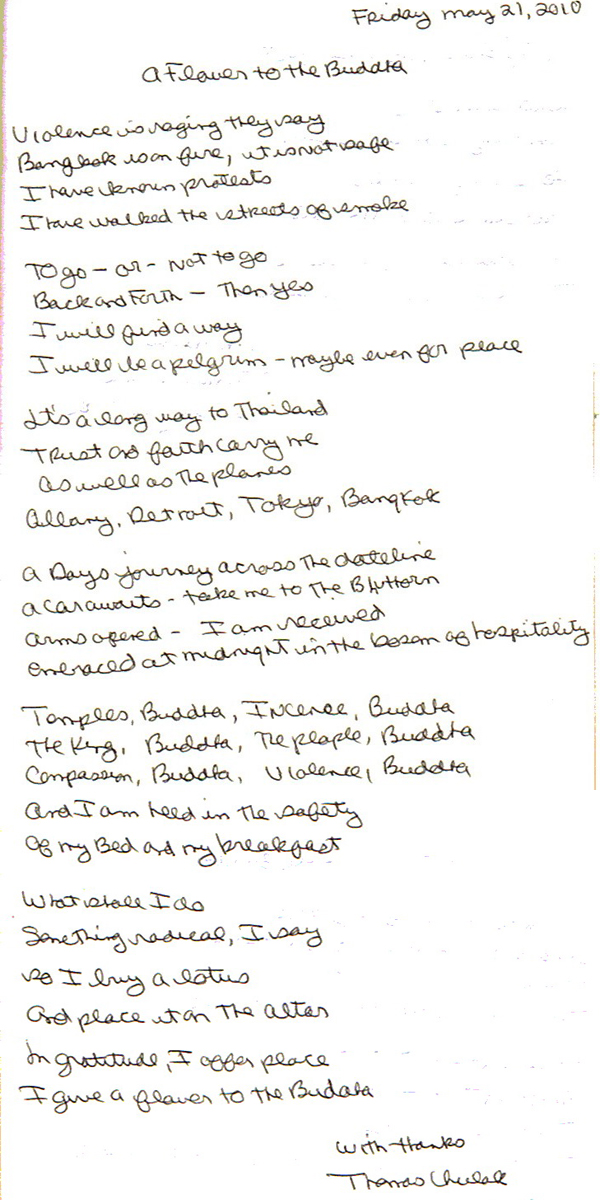 Friday may 21, 2010
A Flower to the Buddha
Violence is raging they say
Bangkok is on fire, it is not safe
I have known protests
I have walked the streets of smoke
To go - or - Not to go
Back and Forth - Then yes
I will find a way
I will be a pilgrim - maybe even for peace
It's a long way to Thailand
Trust and faith carry me
as well as The planes
Albany, Detroit, Tokyo, Bangkok
a Days journey across The dateline
a car awaits - take me to The
arms opened - I am received
embraced at midnight in the bosom of hospitality
Temples, Buddha, Incence, Buddha
The King, Buddha, The people, Buddha
Compassion, Buddha, Violence, Buddha
And I am held in The safety
Of my Bed and my breakfast
What shall I do
Something radical, I say
so I buy a lotus
And place it on The altar
In gratitude, I offer peace
I give a flower to the Buddha
With thanks
Thomas